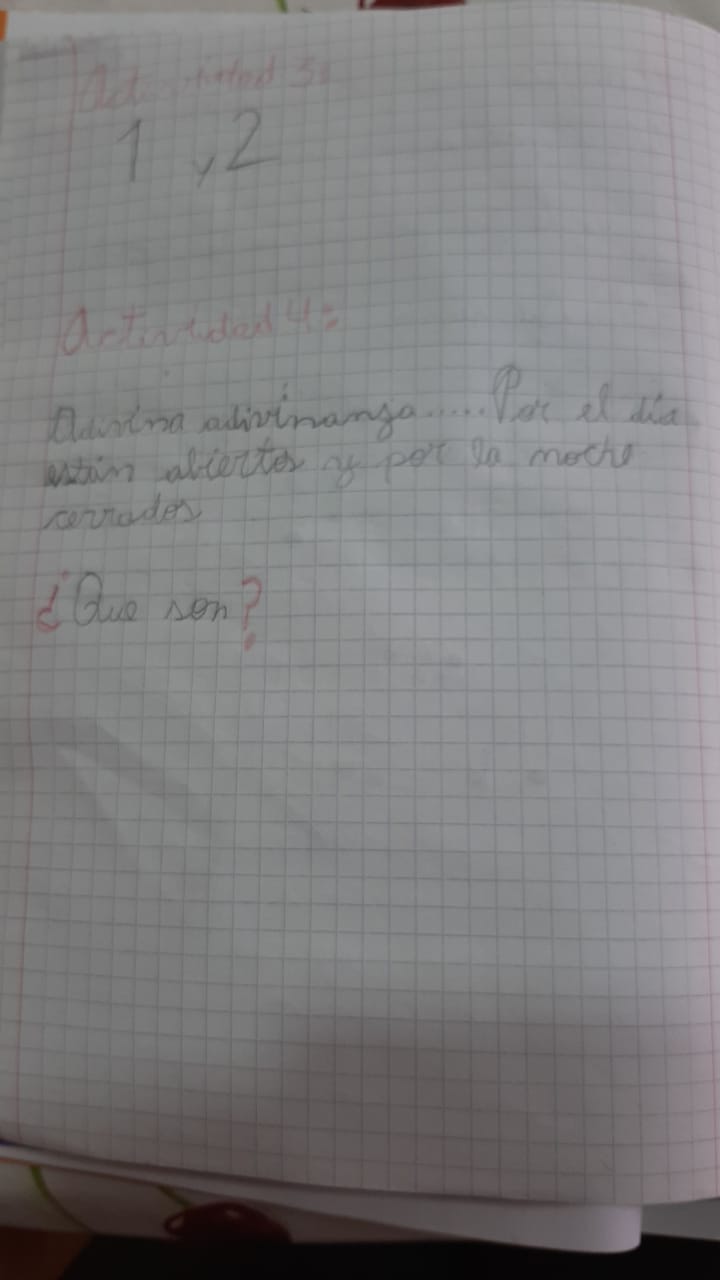 Actividad 3:
1 y 2
Actividad 4:
Adivina adivinanza..... Por el día
están abiertos y por la noche
cerrados
¿Que son?